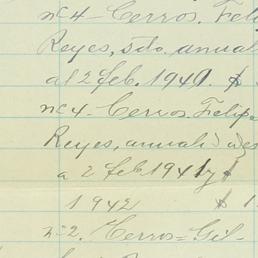 nº 4 - Cerros. Feli
Reyes, sdo. anual
al 2 feb. 1940. $
nº 4 - Cerros. Felipe
Reyes, anuali
a 2 feb 1941 y
1942 $ 1
nº 2. Cerros = Gil-